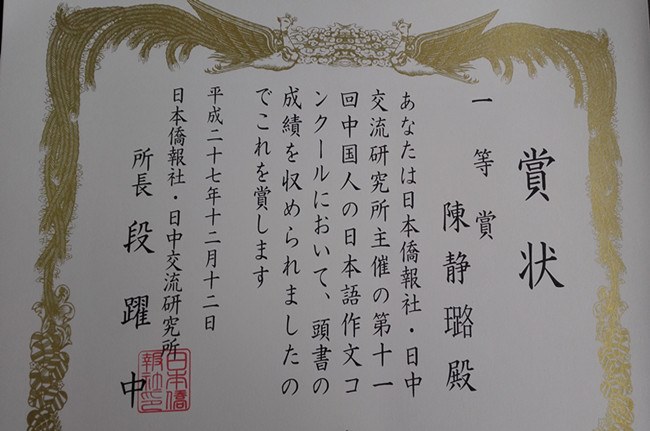 賞状
一等賞
陳静璐殿
あなたは日本僑報社・日中
交流研究所主催の第十一
回中国人の日本語作文コ
ンクールにおいて、頭書の
成績を収められましたの
でこれを賞します
平成二十七年十二月十二日
日本僑報社・日中交流研究所
所長 段躍中
日本僑
報社印